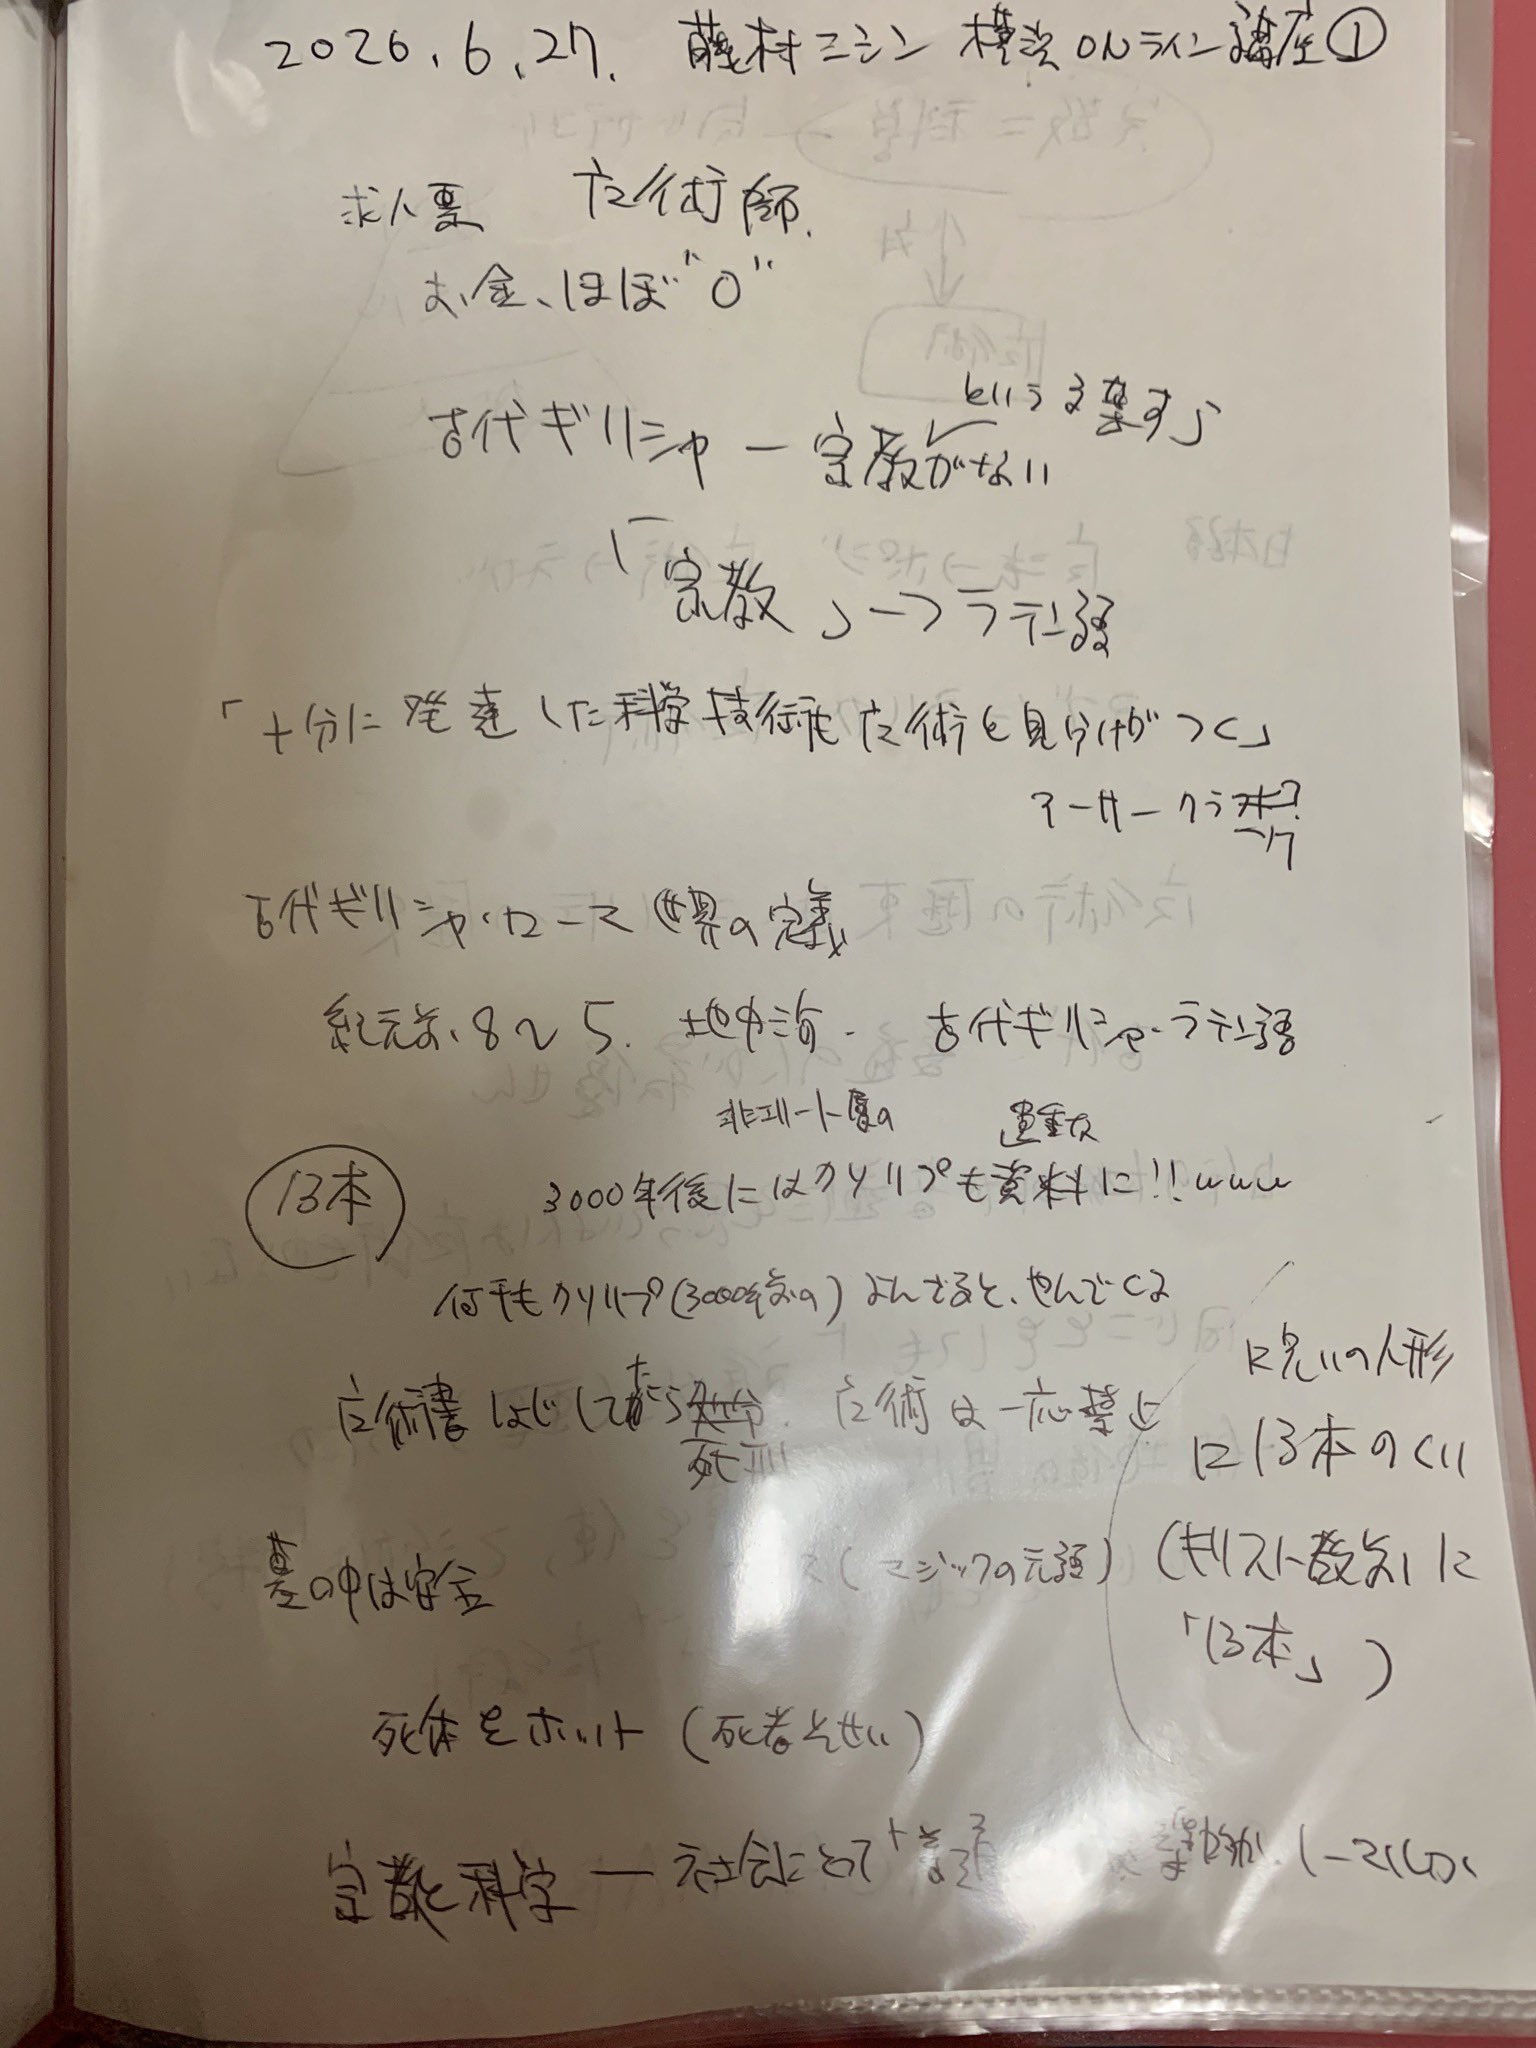 2026.6.27. 藤村シシン 横浜ONライン講座①
求人票 广術師.
お金、ほぼ"0"
という言葉すら
古代ギリシャ — 宗教がない
「宗教」→ラテン語
「十分に発達した科学技術も广術と見分けがつく」
アーサークラ
ーク
古代ギリシャ・ローマ世界の定義
紀元前.8〜5. 地中海. 古代ギリシャ・ラテン語
非エリート層の 遺重な
13本 3000年後にはクソリプも資料に!!www
何千もクソリプ(3000年前の)よんでると、やんでくる
广術書 しょじしてたら 死刑 广術は一応禁止
□呪いの人形
□13本のくい
墓の中は安全 (マジックの元語) (キリスト教前に
「13本」)
死体をホット(死者そせい)
宗教と科学 — 社会にとって